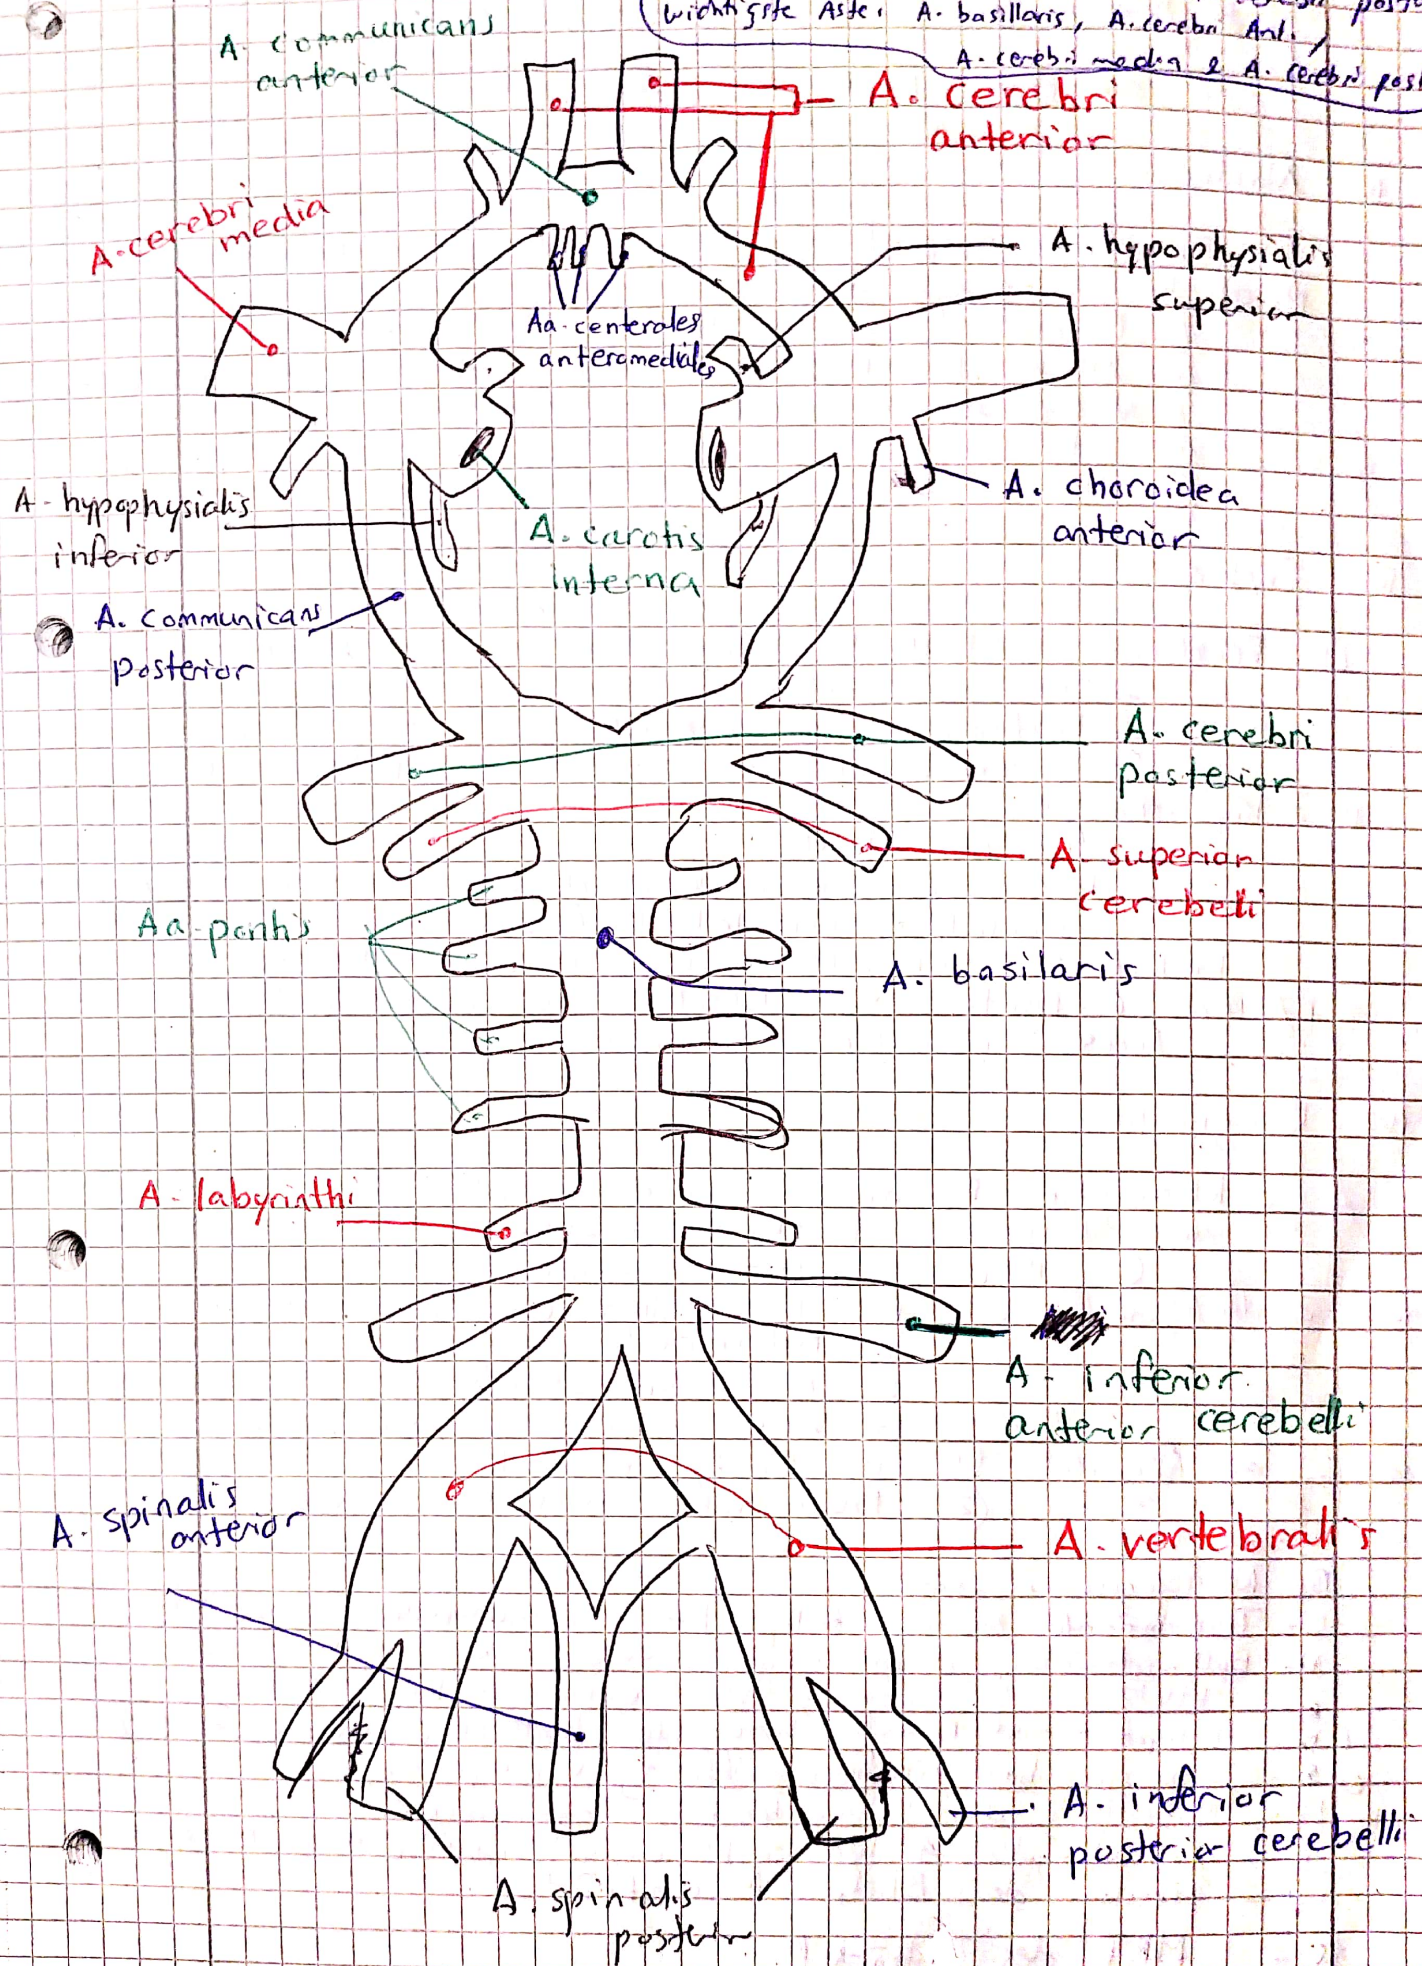 wichtigste Äste: A. basillaris, A. cerebri Ant.,
A. cerebri media & A. cerebri post
A. communicans
anterior
A. cerebri
anterior
A. cerebri
media
A. hypophysialis
superior
Aa. centerales
anteromediales
A. hypophysialis
inferior
A. carotis
interna
A. choroidea
anterior
A. communicans
posterior
A. cerebri
posterior
A. superior
cerebelli
Aa. pontis
A. basilaris
A. labyrinthi
A. inferior
anterior cerebelli
A. spinalis
anterior
A. vertebralis
A. inferior
posterior cerebelli
A. spinalis
posterior